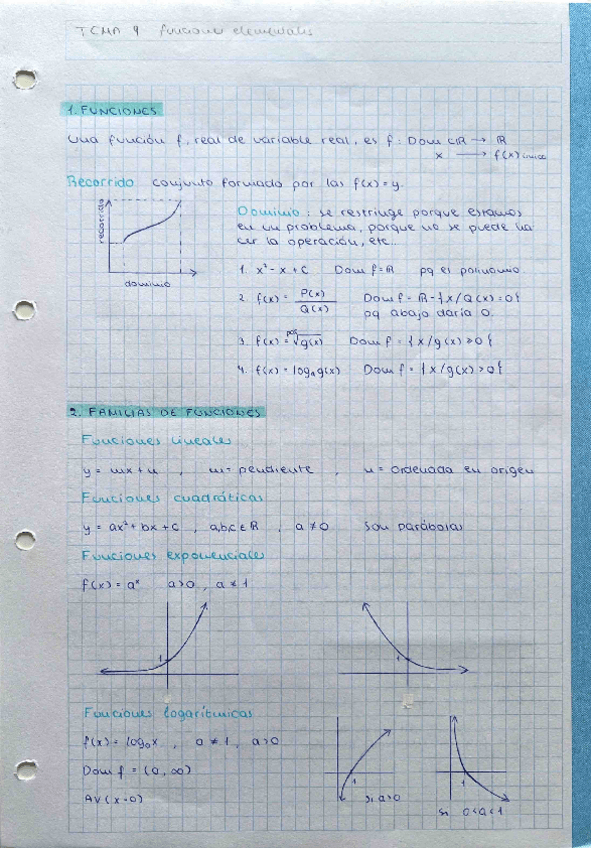 TEMA 9 funciones elementales
1. FUNCIONES
Una función f, real de variable real, es f: Dom ⊂ ℝ → ℝ
x → f(x) único
Recorrido conjunto formado por las f(x)=y.
recorrido
dominio
Dominio: se restringe porque estamos
en un problema, porque no se puede ha
cer la operación, etc...
1. x² - x + c Dom f = ℝ pq es polinomio
2. f(x) = P(x)/Q(x) Dom f = ℝ - {x/Q(x)=0}
pq abajo daría 0.
3. f(x) = par√g(x) Dom f = {x/g(x) ≥ 0}
4. f(x) = logₐ g(x) Dom f = {x/g(x) > 0}
2. FAMILIAS DE FUNCIONES
Funciones lineales
y = mx + n , m = pendiente , n = ordenada en origen
Funciones cuadráticas
y = ax² + bx + c , a,b,c ∈ ℝ , a ≠ 0 son parábolas
Funciones exponenciales
f(x) = aˣ a>0, a ≠ 1
1
1
Funciones logarítmicas
f(x) = logₐx , a ≠ 1, a>0
Dom f = (0, ∞)
AV (x=0)
1
si a>0
1
si 0<a<1